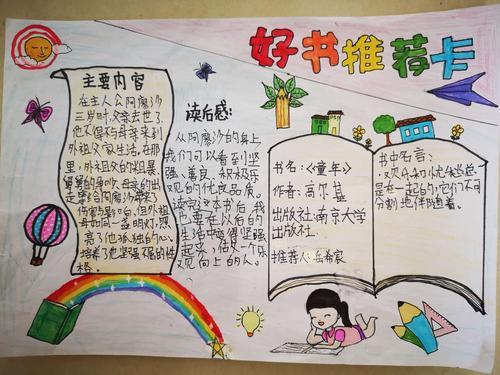 好书推荐卡
主要内容
在主人公阿廖沙
三岁时,父亲去世了。
他不得不与母亲来到
外祖父家生活,在那
里,外祖父的粗暴、
舅舅的争吵、母亲的出
走等给阿廖沙带来了
伤害影响,但外祖
母如同一盏明灯,照
亮了他孤独的心,
培养了他坚强不屈的性
格。
读后感:
从阿廖沙的身上,
我们可以看到坚
强、善良、积极乐
观的优良品质。
读完这本书后,我
也要在以后的
生活中变得坚强
起来,做一个乐
观向上的人。
书名:《童年》
作者:高尔基
出版社:南京大学
出版社
推荐人:岳希宸
书中名言:
欢乐和忧愁总
是在一起的,它们不可
分割地伴随着。